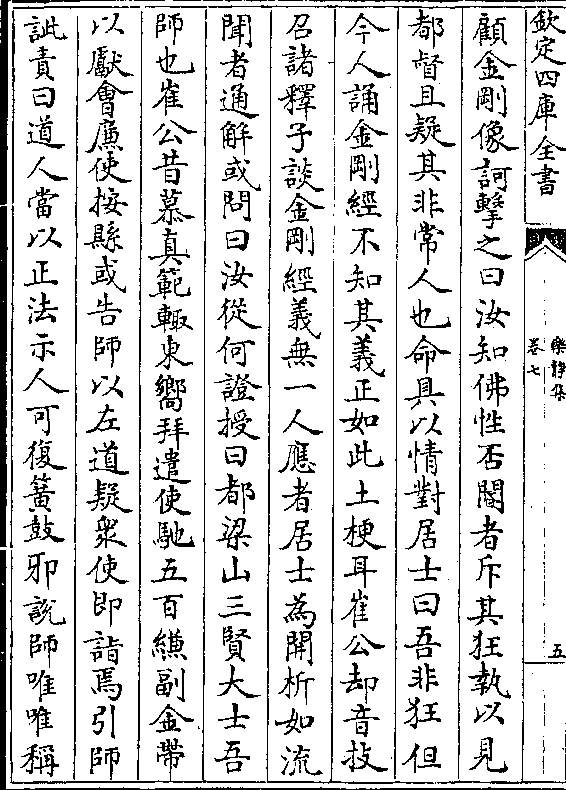 欽定四庫全書
樂靜集
卷七
五
顧金剛像訶擊之曰汝知佛性否閽者斥其狂執以見
都督且疑其非常人也命具以情對居士曰吾非狂但
今人誦金剛經不知其義正如此土梗耳崔公却音技
召諸釋子談金剛經義無一人應者居士為開析如流
聞者通解或問曰汝從何證授曰都梁山三賢大士吾
師也崔公昔慕真範輙東嚮拜遣使馳五百縑副金帶
以獻會廉使按縣或告師以左道疑衆使即詣焉引師
訿責曰道人當以正法示人可復簧鼓邪説師唯唯稱